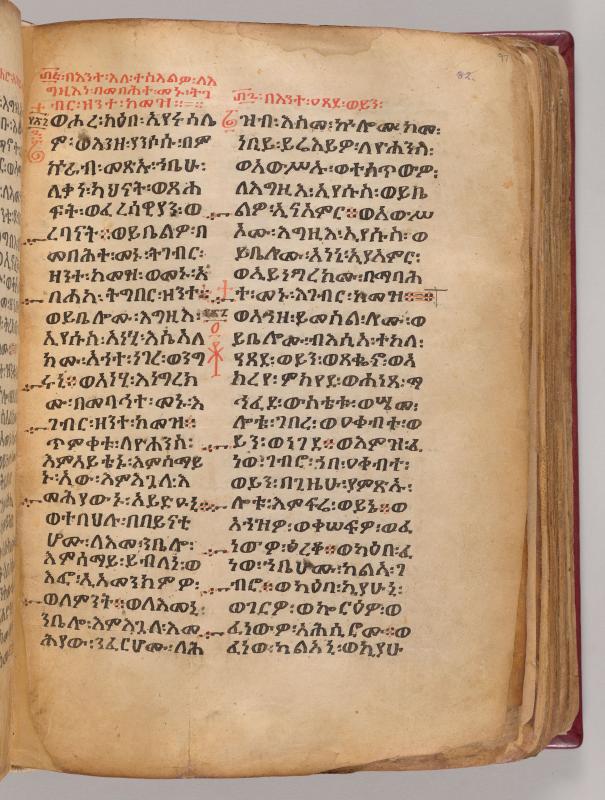 97
82.
፴፩፡በእንተ፡እለ፡ተስእልዎ፡ለእ
ግዚእነ፡በመባሕተ፡መኑ፡ትገ
ብር፡ዝንተ፡ከመዝ።
ወሖረ፡ካዕበ፡ኢየሩሳሌ
ም፡ወእንዘ፡ያንሶሱ፡በም
ኵራብ፡መጽኡ፡ኀቤሁ፡
ሊቃነ፡ካህናት፡ወጸሐ
ፍት፡ወፈሪሳዊያን፡ወ
ረባናት።ወይቤልዎ፡በ
መባሕተ፡መኑ፡ትገብር፡
ዝንተ፡ከመዝ፡ወመኑ፡አ
ባሐከ፡ትግበር፡ዝንተ።
ወይቤሎሙ፡እግዚእ፡
ኢየሱስ፡አነሂ፡እሴአለ
ክሙ፡አሐተ፡ነገረ፡ወንግ
ሩኒ።ወአነሂ፡እነግረክ
ሙ፡በመባሕተ፡መኑ፡እ
ገብር፡ዝንተ፡ከመዝ።
ጥምቀቱ፡ለዮሐንስ፡
እምአይቴኑ፡እምሰማይ
ኑ፡አው፡እምእጓለ፡እ
መሕያውኑ፡አይድዑኒ።
ወተባህሉ፡በበይናቲ
ሆሙ፡ለእመ፡ንቤሎ፡
እምሰማይ፡ይብለነ፡ወ
እፎ፡ኢአመንክምዎ፡
ወለምንት።ወለእመኒ፡
ንቤሎ፡እምእጓለ፡እመ
ሕያው፡ንፈርሆሙ፡ለሕ
፴፪፡በእንተ፡ዐጸደ፡ወይን፡
ዝብ፡እስመ፡ኵሎሙ፡ከመ፡
ነቢይ፡ይሬእይዎ፡ለዮሐንስ፡
ወአውሥኡ፡ወተሐጥውዎ፡
ለእግዚእ፡ኢየሱስ፡ወይቤ
ልዎ፡ኢናአምር።ወአውሥ
አሙ፡እግዚእ፡ኢየሱስ፡ወ
ይቤሎሙ፡አነኒ፡ኢያአምር፡
ወኢይነግረክሙ፡በማባሕ
ት፡መኑ፡እገብር፡ከመዝ።
ወእንዘ፡ይመስል፡ሎሙ፡ወ
ይቤሎሙ፡ብእሲ፡ተከለ፡
ዐጸደ፡ወይን፡ወጸቈኖ፡ወአ
ክረየ፡ምክየደ፡ወሐነጸ፡ማ
ኅፈደ፡ውስቴቱ፡ወሤመ፡
ሎቱ፡ገባረ፡ወዐቀብተ፡ወ
ይን፡ወነገደ።ወእምዝ፡ፈ
ነወ፡ገብሮ፡ኀበ፡ዐቀብተ፡
ወይን፡በጊዜሁ፡ያምጽኡ፡
ሎቱ፡እምፍሬ፡ወይኑ።ወ
አኀዝዎ፡ወቀሠፍዎ፡ወፈ
ነውዎ፡ዕራቆ።ወካዕበ፡ፈ
ነወ፡ኀቤሆሙ፡ካልአ፡ገ
ብሮ።ወካዕበ፡ኪያሁኒ፡
ወገርዎ፡ወኰርዕዎ፡ወ
ፈነውዎ፡አሕሲሮሙ።ወ
ፈነወ፡ካልአኒ፡ወኪያሁ